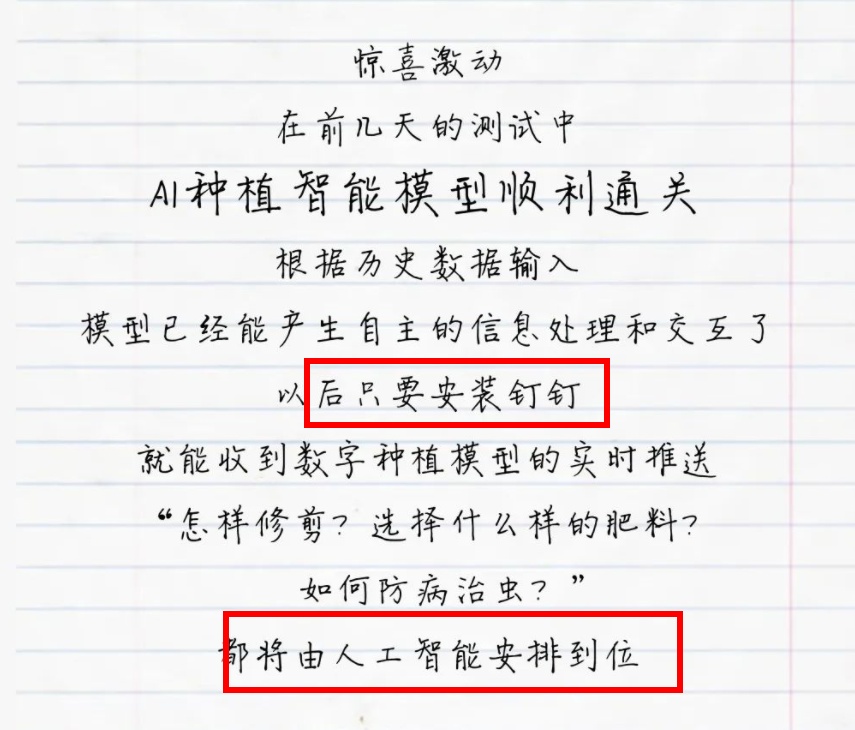 惊喜激动
在前几天的测试中
AI种植智能模型顺利通关
根据历史数据输入
模型已经能产生自主的信息处理和交互了
以后只要安装钉钉
就能收到数字种植模型的实时推送
“怎样修剪？选择什么样的肥料？
如何防病治虫？”
都将由人工智能安排到位